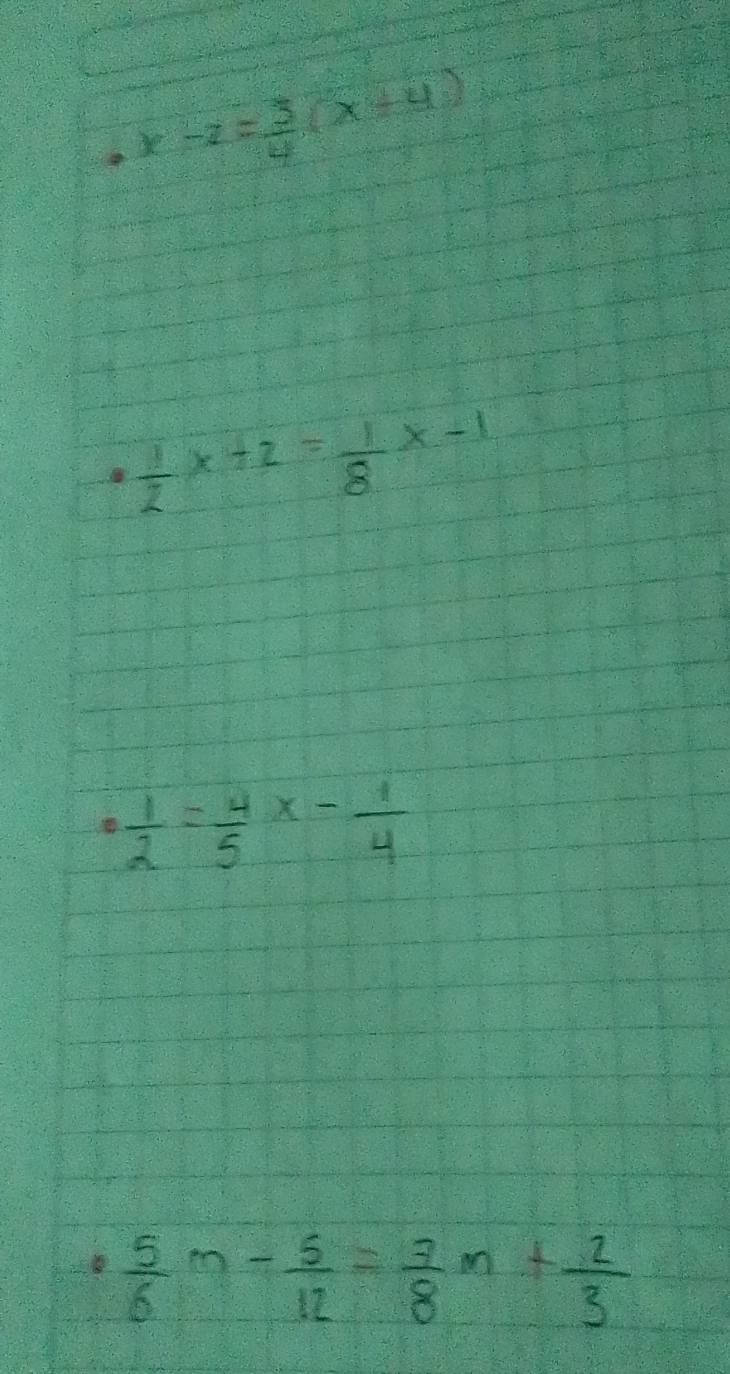 • x - 2 = 3/4 (x + 4)
• 1/2 x + 2 = 1/8 x - 1
• 1/2 = 4/5 x - 1/4
• 5/6 m - 5/12 = 7/8 m + 2/3